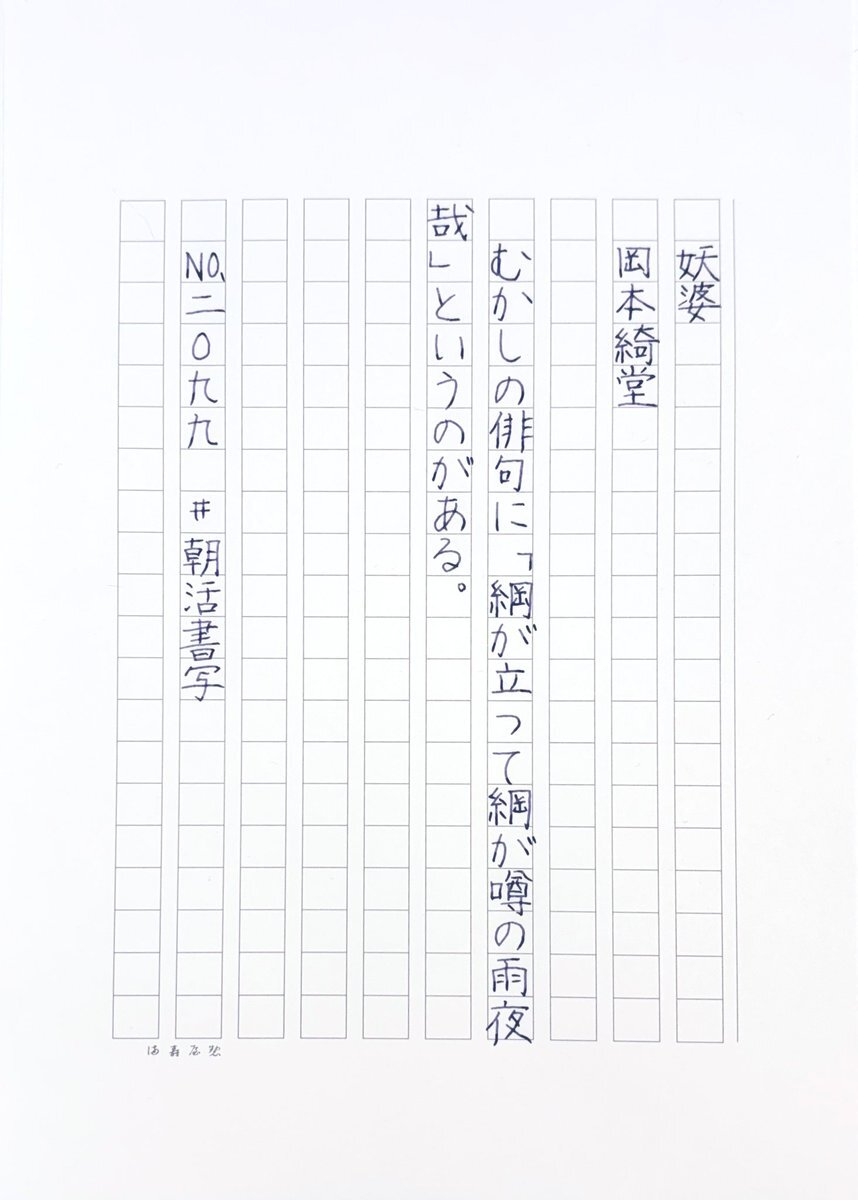 妖婆
岡本綺堂
むかしの俳句に「綱が立って綱が噂の雨夜
哉」というのがある。
NO.二0九九 #朝活書写